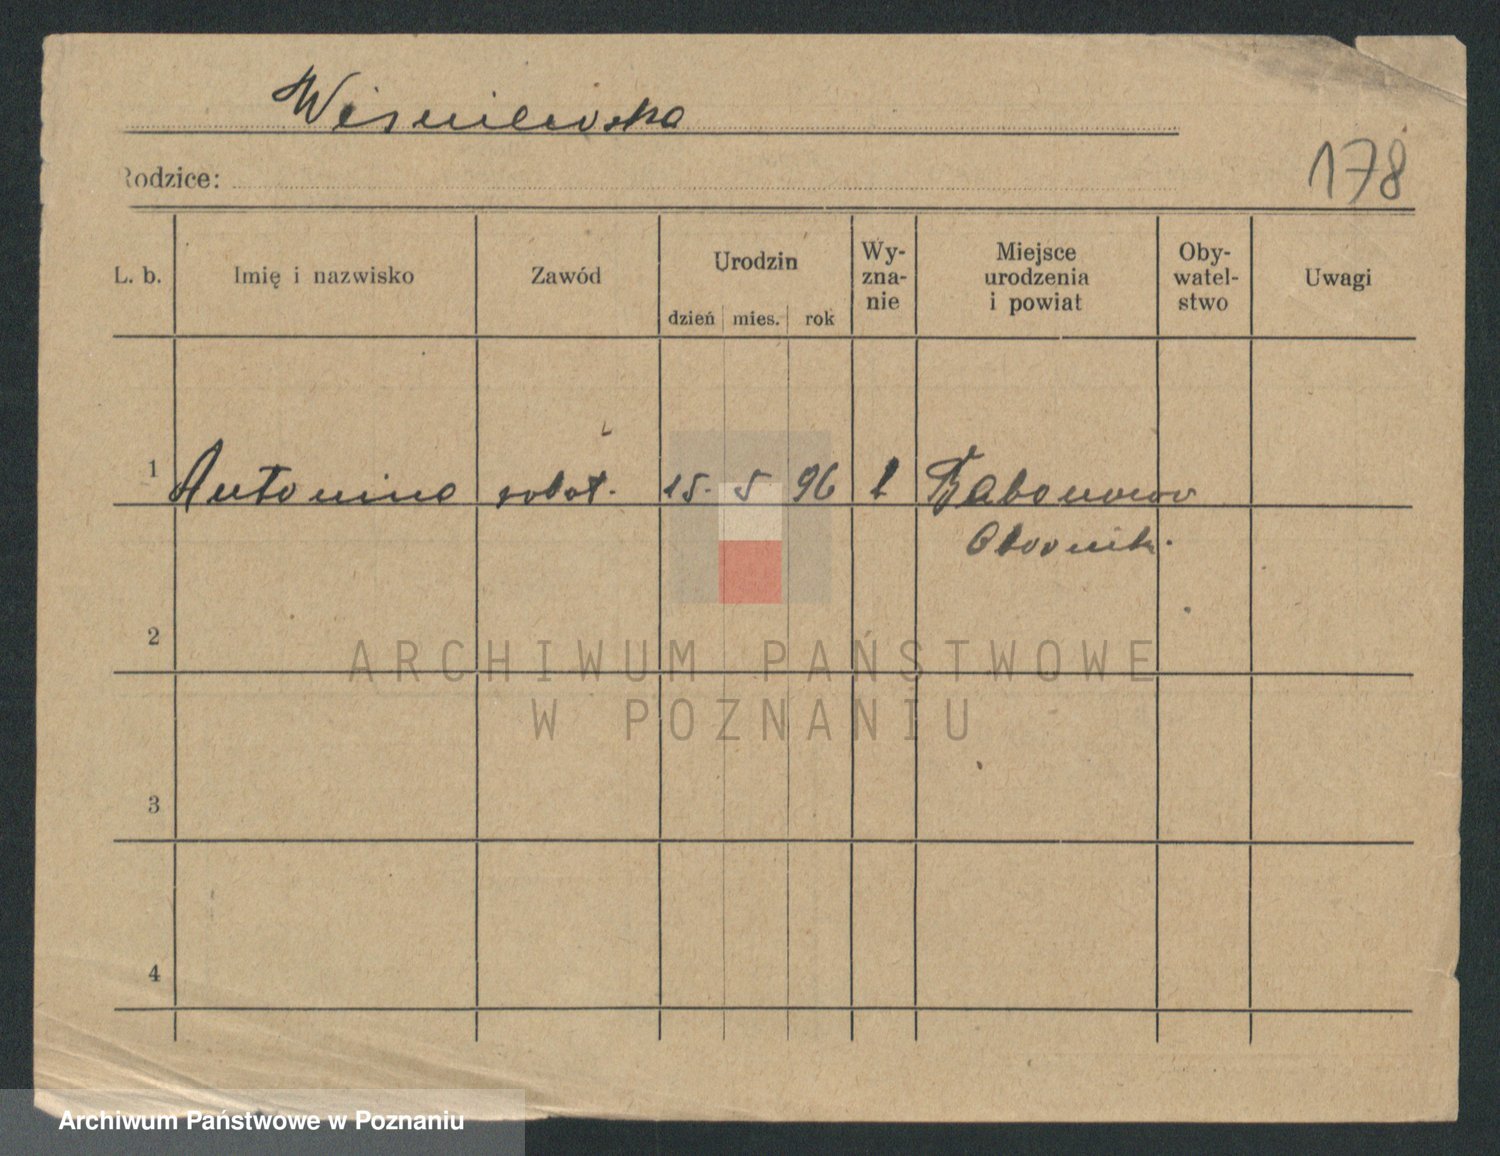 Wiśniewska
Rodzice:
178
L. b. Imię i nazwisko Zawód Urodzin dzień mies. rok Wy-zna-nie Miejsce urodzenia i powiat Oby-watel-stwo Uwagi
1 Antonina robot. 15. 5 96 Obornik.
2
3
4
ARCHIWUM PAŃSTWOWE
W POZNANIU
Archiwum Państwowe w Poznaniu